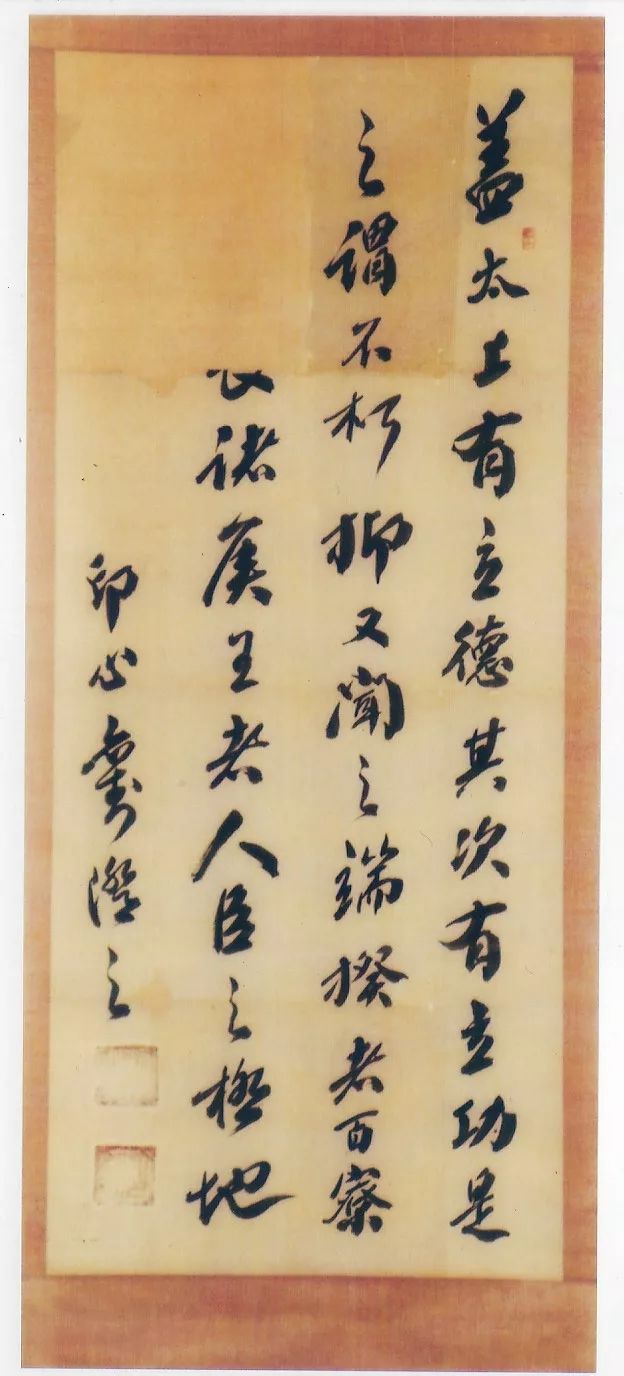 盖太上有立德其次有立功是
之謂不朽抑又聞之端揆者百寮
長諸侯王者人臣之極地
印心劉澄之